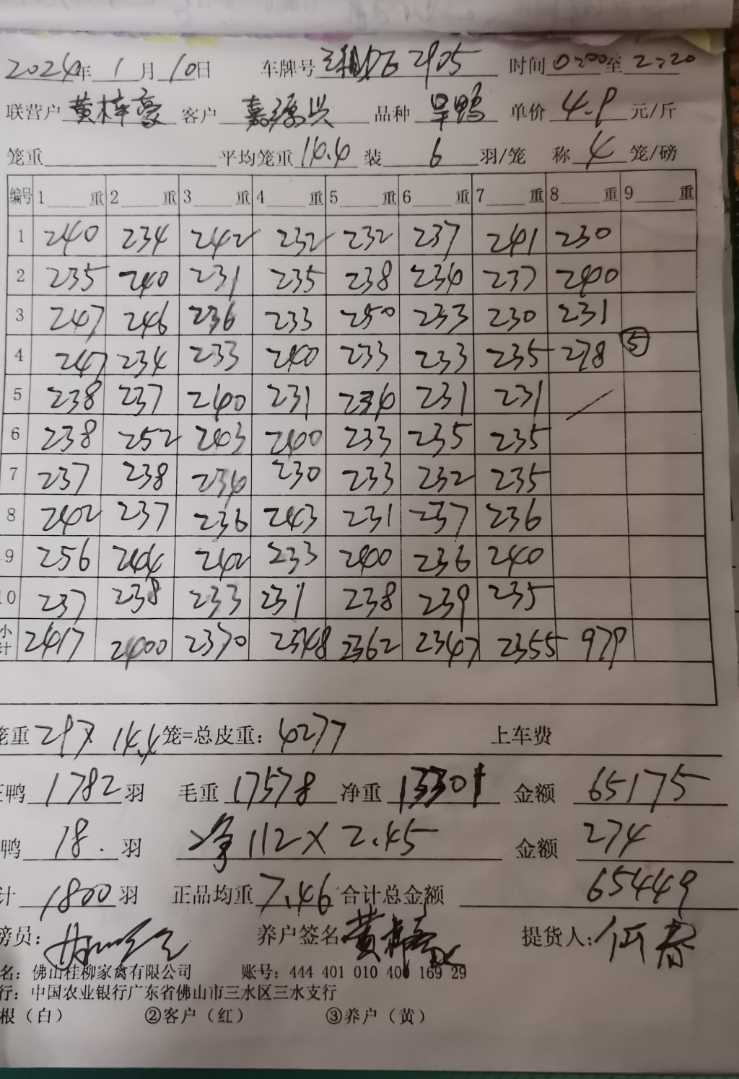 2024年 1 月 10 日 车牌号 2905 时间 0:00 至 2:20
联营户 黄梓豪 客户 嘉源兴 品种 旱鸭 单价 4.9 元/斤
笼重 平均笼重 14.4 装 6 羽/笼 称 4 笼/磅
编号 1 重 2 重 3 重 4 重 5 重 6 重 7 重 8 重 9 重
1 240 234 242 232 232 237 241 230
2 235 240 231 235 238 234 237 240
3 247 246 236 233 240 233 230 231
4 247 234 233 240 233 233 235 278 ⑤
5 238 237 240 231 234 231 231
6 238 252 243 240 233 235 235
7 237 238 234 230 233 232 235
8 242 237 236 243 231 237 236
9 256 244 242 233 240 236 240
10 237 238 233 231 238 239 235
小计 2417 2400 2370 2348 2362 2347 2355 979
笼重 297 × 14.4 笼=总皮重: 4277 上车费
鸭 1782 羽 毛重 17578 净重 13301 金额 65175
鸭 18. 羽 净 112 × 2.45 金额 274
计 1800 羽 正品均重 7.46 合计总金额 65449
磅员: 养户签名 黄梓豪 提货人: 伍春
名: 佛山桂柳家禽有限公司 账号: 444 401 010 40 169 29
行: 中国农业银行广东省佛山市三水区三水支行
根(白) ②客户(红) ③养户(黄)